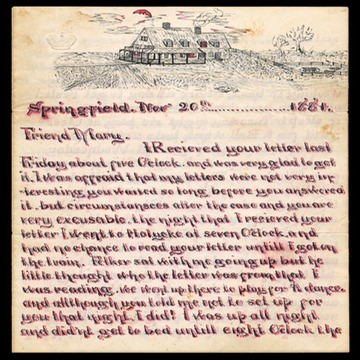 Springfield, Nov 20th..................1884.
Friend Mary.
I Recieved your letter last
Friday about five Oclock. and was very glad to get
it. I was affraid that my letters were not very in
-teresting you waited so long before you answered
it. but circumstansces after the case and you are
very excusable. the night that I recieved your
letter I went to Holyoke at seven Oclock. and
had no chance to read your letter untill I got on
the train. sat with me going up but he
little thought who the letter was from that I
was reading. we went up there to play for A dance.
and allthough you told me not to set up for
you that night, I did! I was up all night
and didn't get to bed untill eight Oclock the